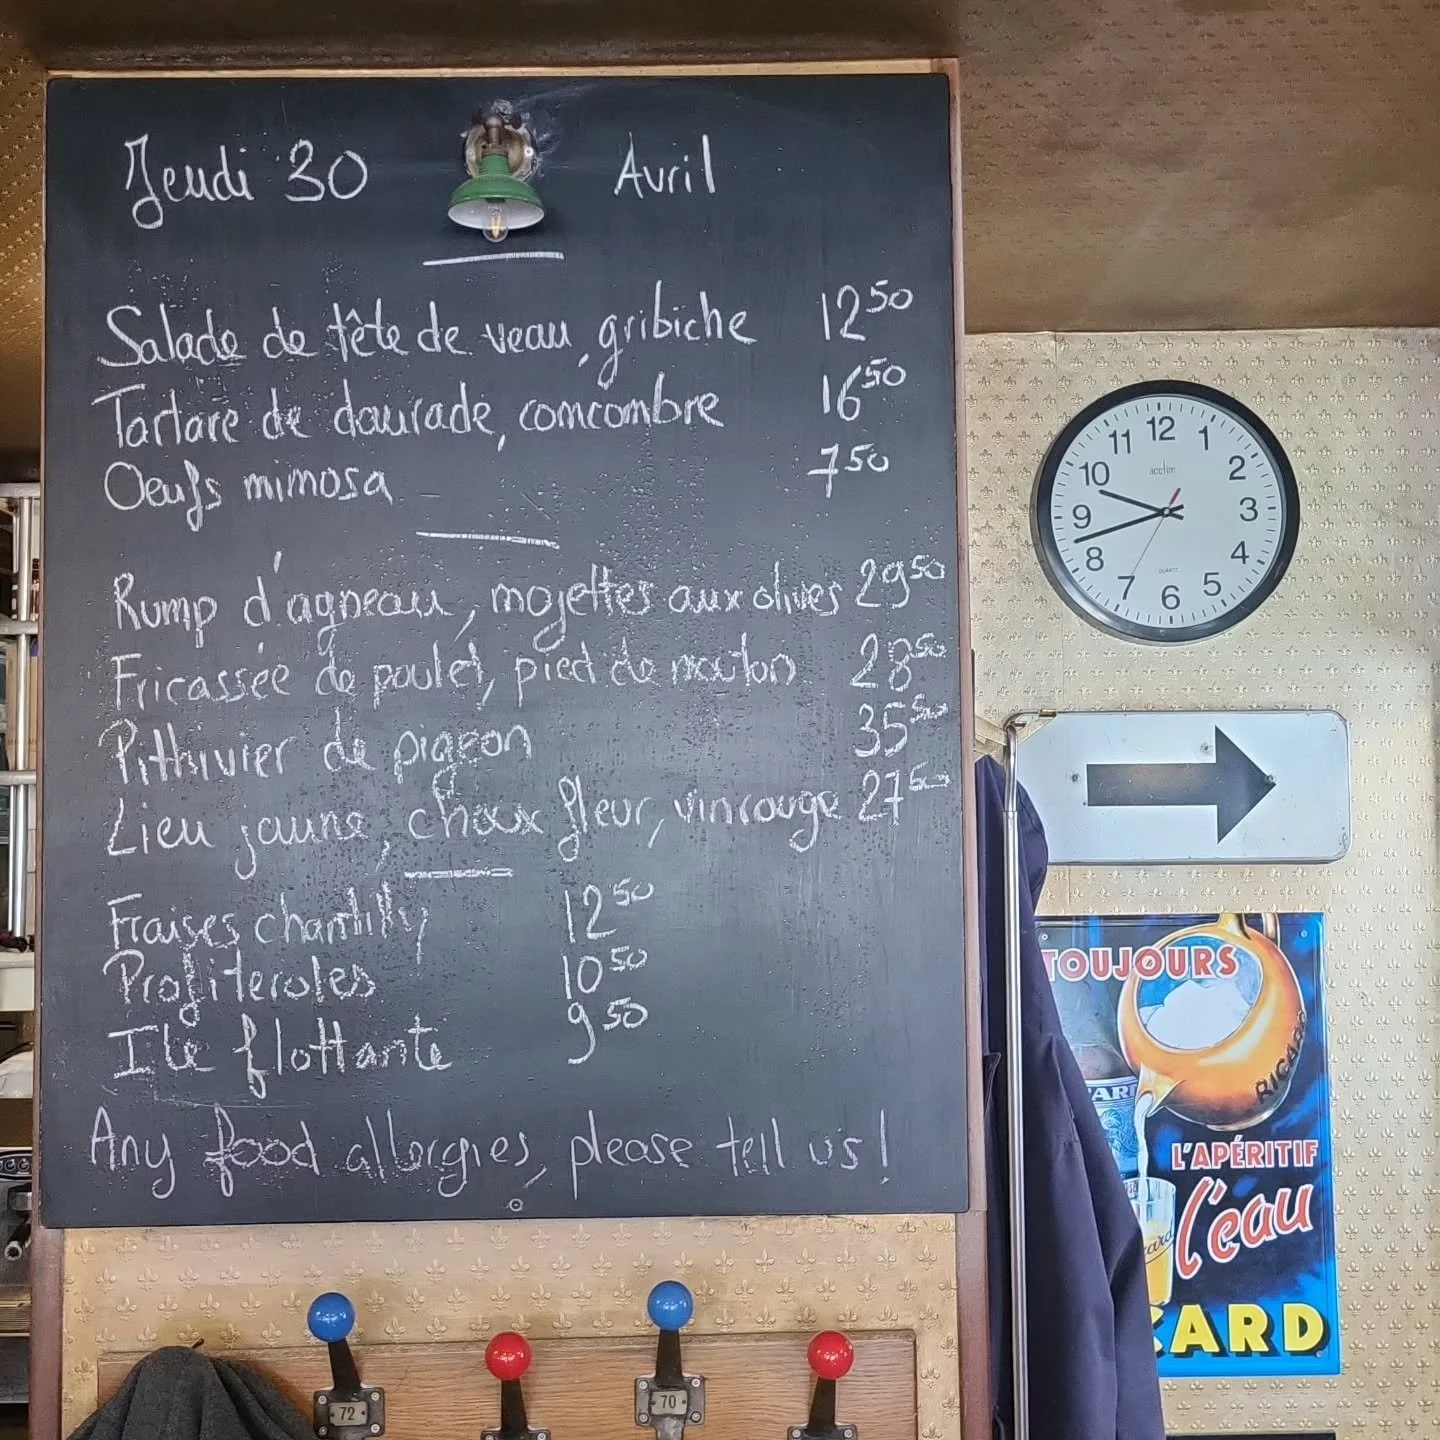 Jeudi 30 Avril
Salade de tête de veau, gribiche 12 50
Tartare de daurade, concombre 16 50
Oeufs mimosa 7 50
Rump d'agneau, mojettes aux olives 29 50
Fricassée de poulet, pied de mouton 28 50
Pithivier de pigeon 35 50
Lieu jaune, choux fleur, vin rouge 27 50
Fraises chantilly 12 50
Profiteroles 10 50
Ile flottante 9 50
Any food allergies, please tell us!
72
70
12
1
2
3
4
5
6
7
8
9
10
11
acctim
QUARTZ
TOUJOURS
RICARD
L'APÉRITIF
l'eau
CARD